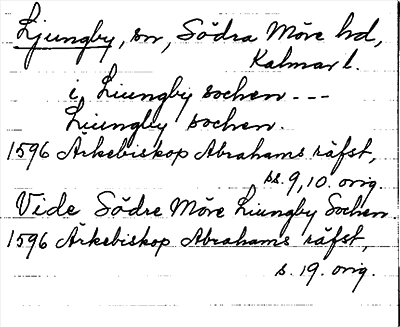 Ljungby, sn, Södra Möre hd,
Kalmar l.
i Liungby sochen ---
Liungby sochen.
1596 Ärkebiskop Abrahams räfst,
ss. 9, 10. orig.
Vide Södre Möre Liungby Sochen.
1596 Ärkebiskop Abrahams räfst,
s. 19. orig.